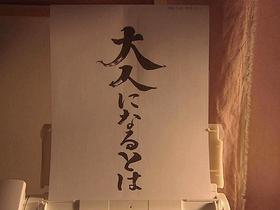 大人になるとは